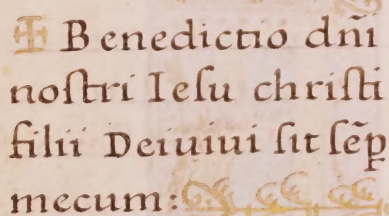 ✠ Benedictio dn̄i
noſtri Ieſu chriſti
filii Deiuiui ſit ſēꝑ
mecum: